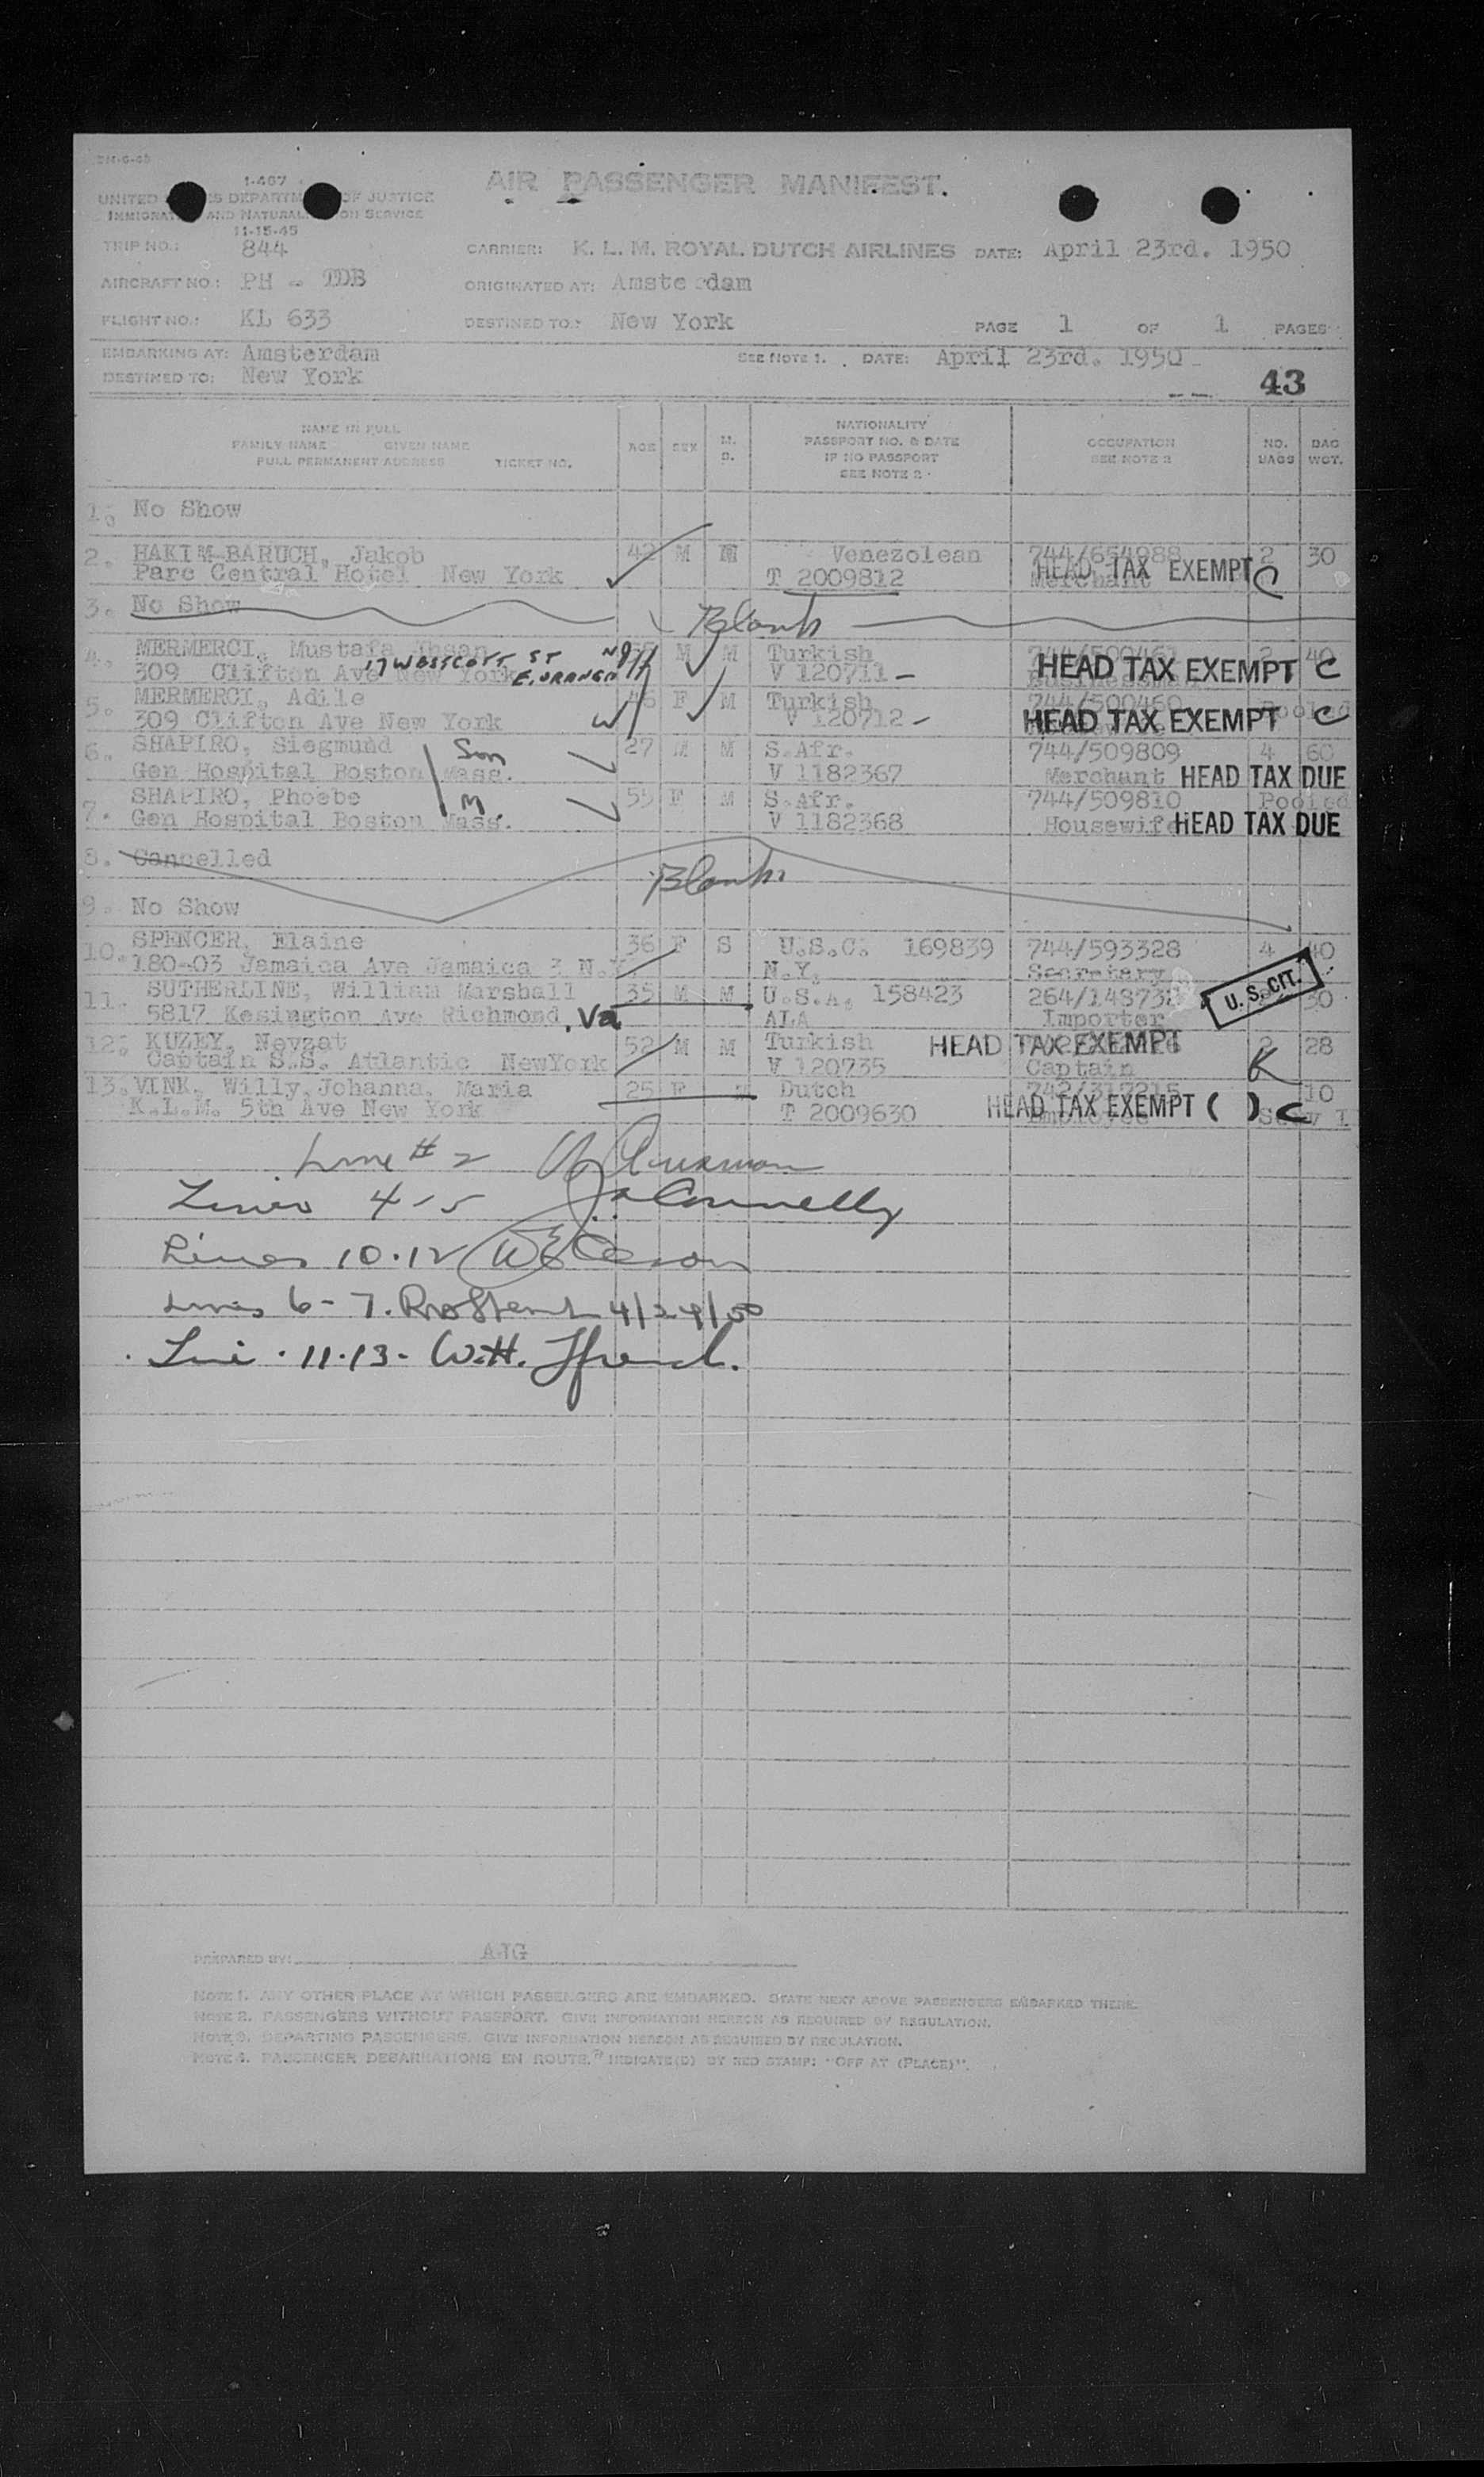 1-467
UNITED STATES DEPARTMENT OF JUSTICE
IMMIGRATION AND NATURALIZATION SERVICE
11-15-45
AIR PASSENGER MANIFEST.
TRIP NO.: 844 CARRIER: K. L. M. ROYAL DUTCH AIRLINES DATE: April 23rd. 1950
AIRCRAFT NO.: PH - TDB ORIGINATED AT: Amsterdam
FLIGHT NO.: KL 633 DESTINED TO: New York PAGE 1 OF 1 PAGES
EMBARKING AT: Amsterdam SEE NOTE 1. DATE: April 23rd. 1950
DESTINED TO: New York 43
NAME IN FULL
FAMILY NAME GIVEN NAME
FULL PERMANENT ADDRESS TICKET NO. AGE SEX M. S. NATIONALITY PASSPORT NO. & DATE IF NO PASSPORT SEE NOTE 2 OCCUPATION SEE NOTE 2 NO. BAGS BAG WGT.
1. No Show
2. HAKIM BARUCH, Jakob 42 M M Venezolean 744/654988 2 30
Parc Central Hotel New York T 2009812 Merchant HEAD TAX EXEMPT C
3. No Show Blank
4. MERMERCI, Mustafa Ihsan M M Turkish 744/500461 2 40
309 Clifton Ave New York 17 WESTCOTT ST E. ORANGE NJ V 120711 HEAD TAX EXEMPT C
5. MERMERCI, Adile 46 F M Turkish 744/500460 Pooled
309 Clifton Ave New York W V 120712 HEAD TAX EXEMPT C
6. SHAPIRO, Siegmund Son 27 M M S.Afr. 744/509809 4 60
Gen Hospital Boston Mass. V 1182367 Merchant HEAD TAX DUE
7. SHAPIRO, Phoebe M 55 F M S.Afr. 744/509810 Pooled
Gen Hospital Boston Mass. V 1182368 Housewife HEAD TAX DUE
8. Cancelled Blank
9. No Show
10. SPENCER, Elaine 36 F S U.S.C. 169839 744/593328 4 40
180-03 Jamaica Ave Jamaica 3 N.Y. N.Y. Secretary
11. SUTHERLINE, William Marshall 35 M M U.S.A. 158423 264/148732 U. S. CIT. 30
5817 Kesington Ave Richmond, Va ALA Importer
12. KUZEY, Nevzat 52 M M Turkish HEAD TAX EXEMPT 2 28
Captain S.S. Atlantic NewYork V 120735 Captain K
13. VINK, Willy, Johanna, Maria 25 F M Dutch 742/317215 10
K.L.M. 5th Ave New York T 2009630 Employee HEAD TAX EXEMPT ( ) C
Line # 2
Lines 4-5 J. Connelly
Lines 10.12
Lines 6-7. 4/24/50
Line 11.13- W.H.
PREPARED BY: AJG
NOTE 1. ANY OTHER PLACE AT WHICH PASSENGERS ARE EMBARKED. STATE NEXT ABOVE PASSENGERS EMBARKED THERE.
NOTE 2. PASSENGERS WITHOUT PASSPORT. GIVE INFORMATION HEREON AS REQUIRED BY REGULATION.
NOTE 3. DEPARTING PASSENGERS. GIVE INFORMATION HEREON AS REQUIRED BY REGULATION.
NOTE 4. PASSENGER DEBARKATIONS EN ROUTE. INDICATE(D) BY RED STAMP: "OFF AT (PLACE)".